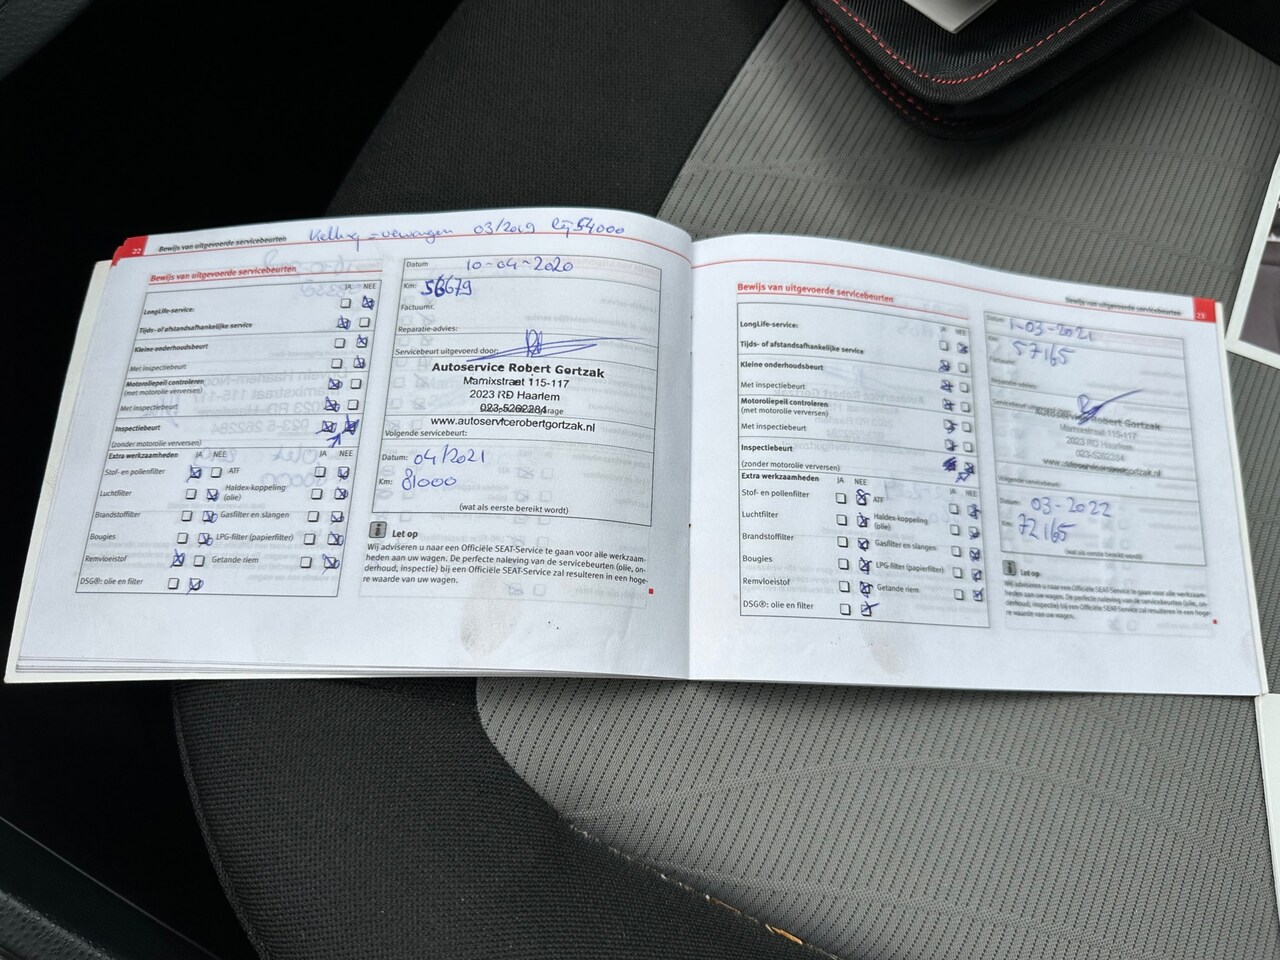 22 Bewijs van uitgevoerde servicebeurten
03/2019 bij 54000
Bewijs van uitgevoerde servicebeurten
JA NEE
LongLife-service:
Tijds- of afstandsafhankelijke service
Kleine onderhoudsbeurt
Met inspectiebeurt
Motoroliepeil controleren
(met motorolie verversen)
Met inspectiebeurt
Inspectiebeurt
(zonder motorolie verversen)
Extra werkzaamheden JA NEE JA NEE
Stof- en pollenfilter ATF
Luchtfilter Haldex-koppeling
(olie)
Brandstoffilter Gasfilter en slangen
Bougies LPG-filter (papierfilter)
Remvloeistof Getande riem
DSG®: olie en filter
Datum 10-04-2020
Km: 56679
Factuurnr.
Reparatie-advies:
Servicebeurt uitgevoerd door:
Autoservice Robert Gortzak
Marnixstraat 115-117
2023 RD Haarlem
023-5262284
www.autoservicerobertgortzak.nl
Volgende servicebeurt:
Datum: 04/2021
Km: 81000
(wat als eerste bereikt wordt)
Let op
Wij adviseren u naar een Officiële SEAT-Service te gaan voor alle werkzaam-
heden aan uw wagen. De perfecte naleving van de servicebeurten (olie, on-
derhoud, inspectie) bij een Officiële SEAT-Service zal resulteren in een hoge-
re waarde van uw wagen.
Bewijs van uitgevoerde servicebeurten 23
Bewijs van uitgevoerde servicebeurten
JA NEE
LongLife-service:
Tijds- of afstandsafhankelijke service
Kleine onderhoudsbeurt
Met inspectiebeurt
Motoroliepeil controleren
(met motorolie verversen)
Met inspectiebeurt
Inspectiebeurt
(zonder motorolie verversen)
Extra werkzaamheden JA NEE JA NEE
Stof- en pollenfilter ATF
Luchtfilter Haldex-koppeling
(olie)
Brandstoffilter Gasfilter en slangen
Bougies LPG-filter (papierfilter)
Remvloeistof Getande riem
DSG®: olie en filter
Datum: 1-03-2021
Km: 57165
Factuurnr.
Reparatie-advies:
Servicebeurt uitgevoerd door:
Autoservice Robert Gortzak
Marnixstraat 115-117
2023 RD Haarlem
023-5262284
www.autoservicerobertgortzak.nl
Volgende servicebeurt:
Datum: 03-2022
Km: 72165
(wat als eerste bereikt wordt)
Let op
Wij adviseren u naar een Officiële SEAT-Service te gaan voor alle werkzaam-
heden aan uw wagen. De perfecte naleving van de servicebeurten (olie, on-
derhoud, inspectie) bij een Officiële SEAT-Service zal resulteren in een hoge-
re waarde van uw wagen.